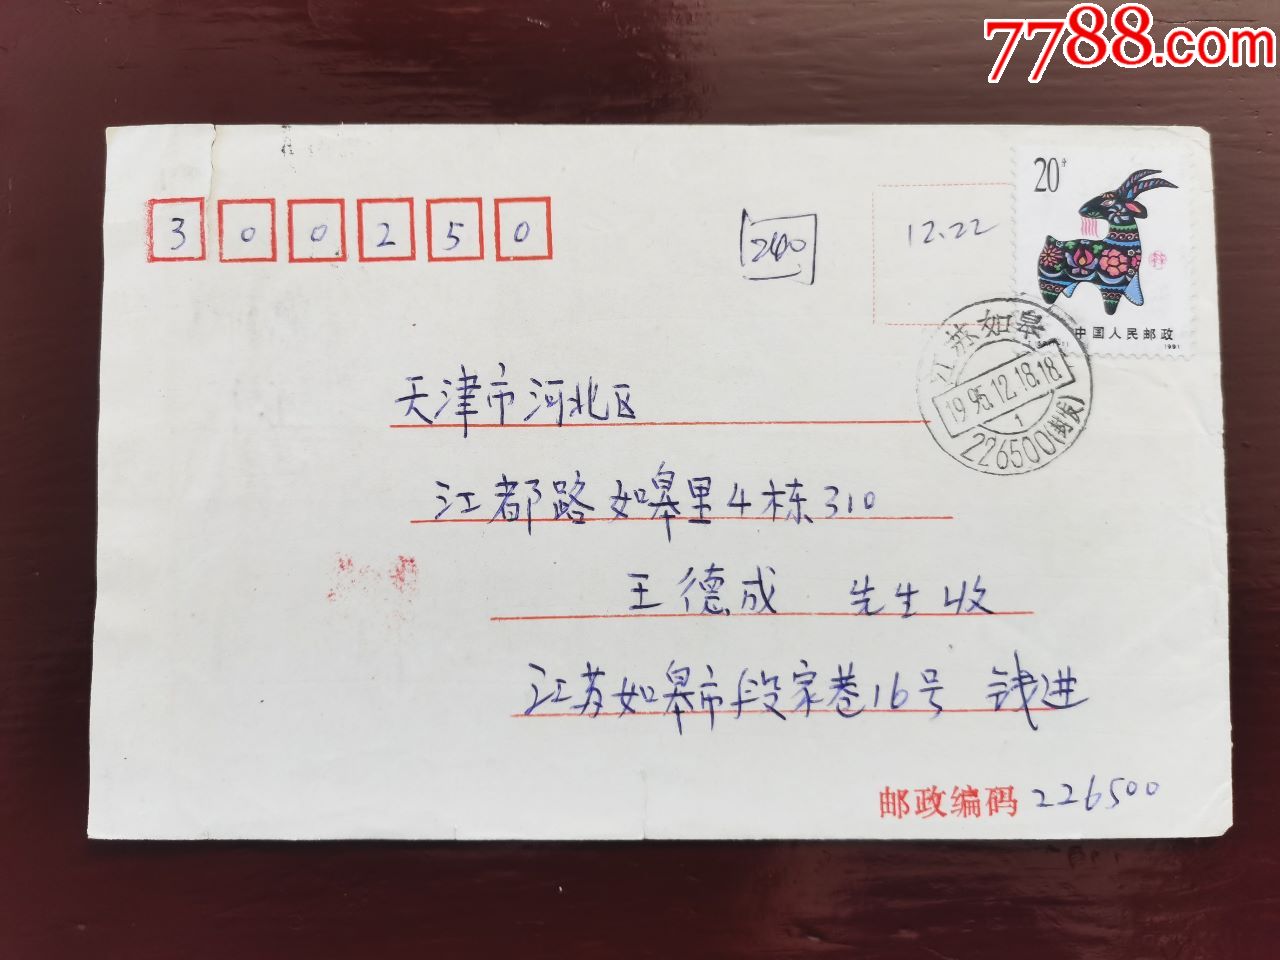 7788.com
20分
300250
240
12.22
中国人民邮政
1991
江苏如皋
1995.12.18.18
1
226500(封发)
天津市河北区
江都路如皋里4栋310
王德成 先生收
江苏如皋市段家巷16号 钱进
邮政编码 226500